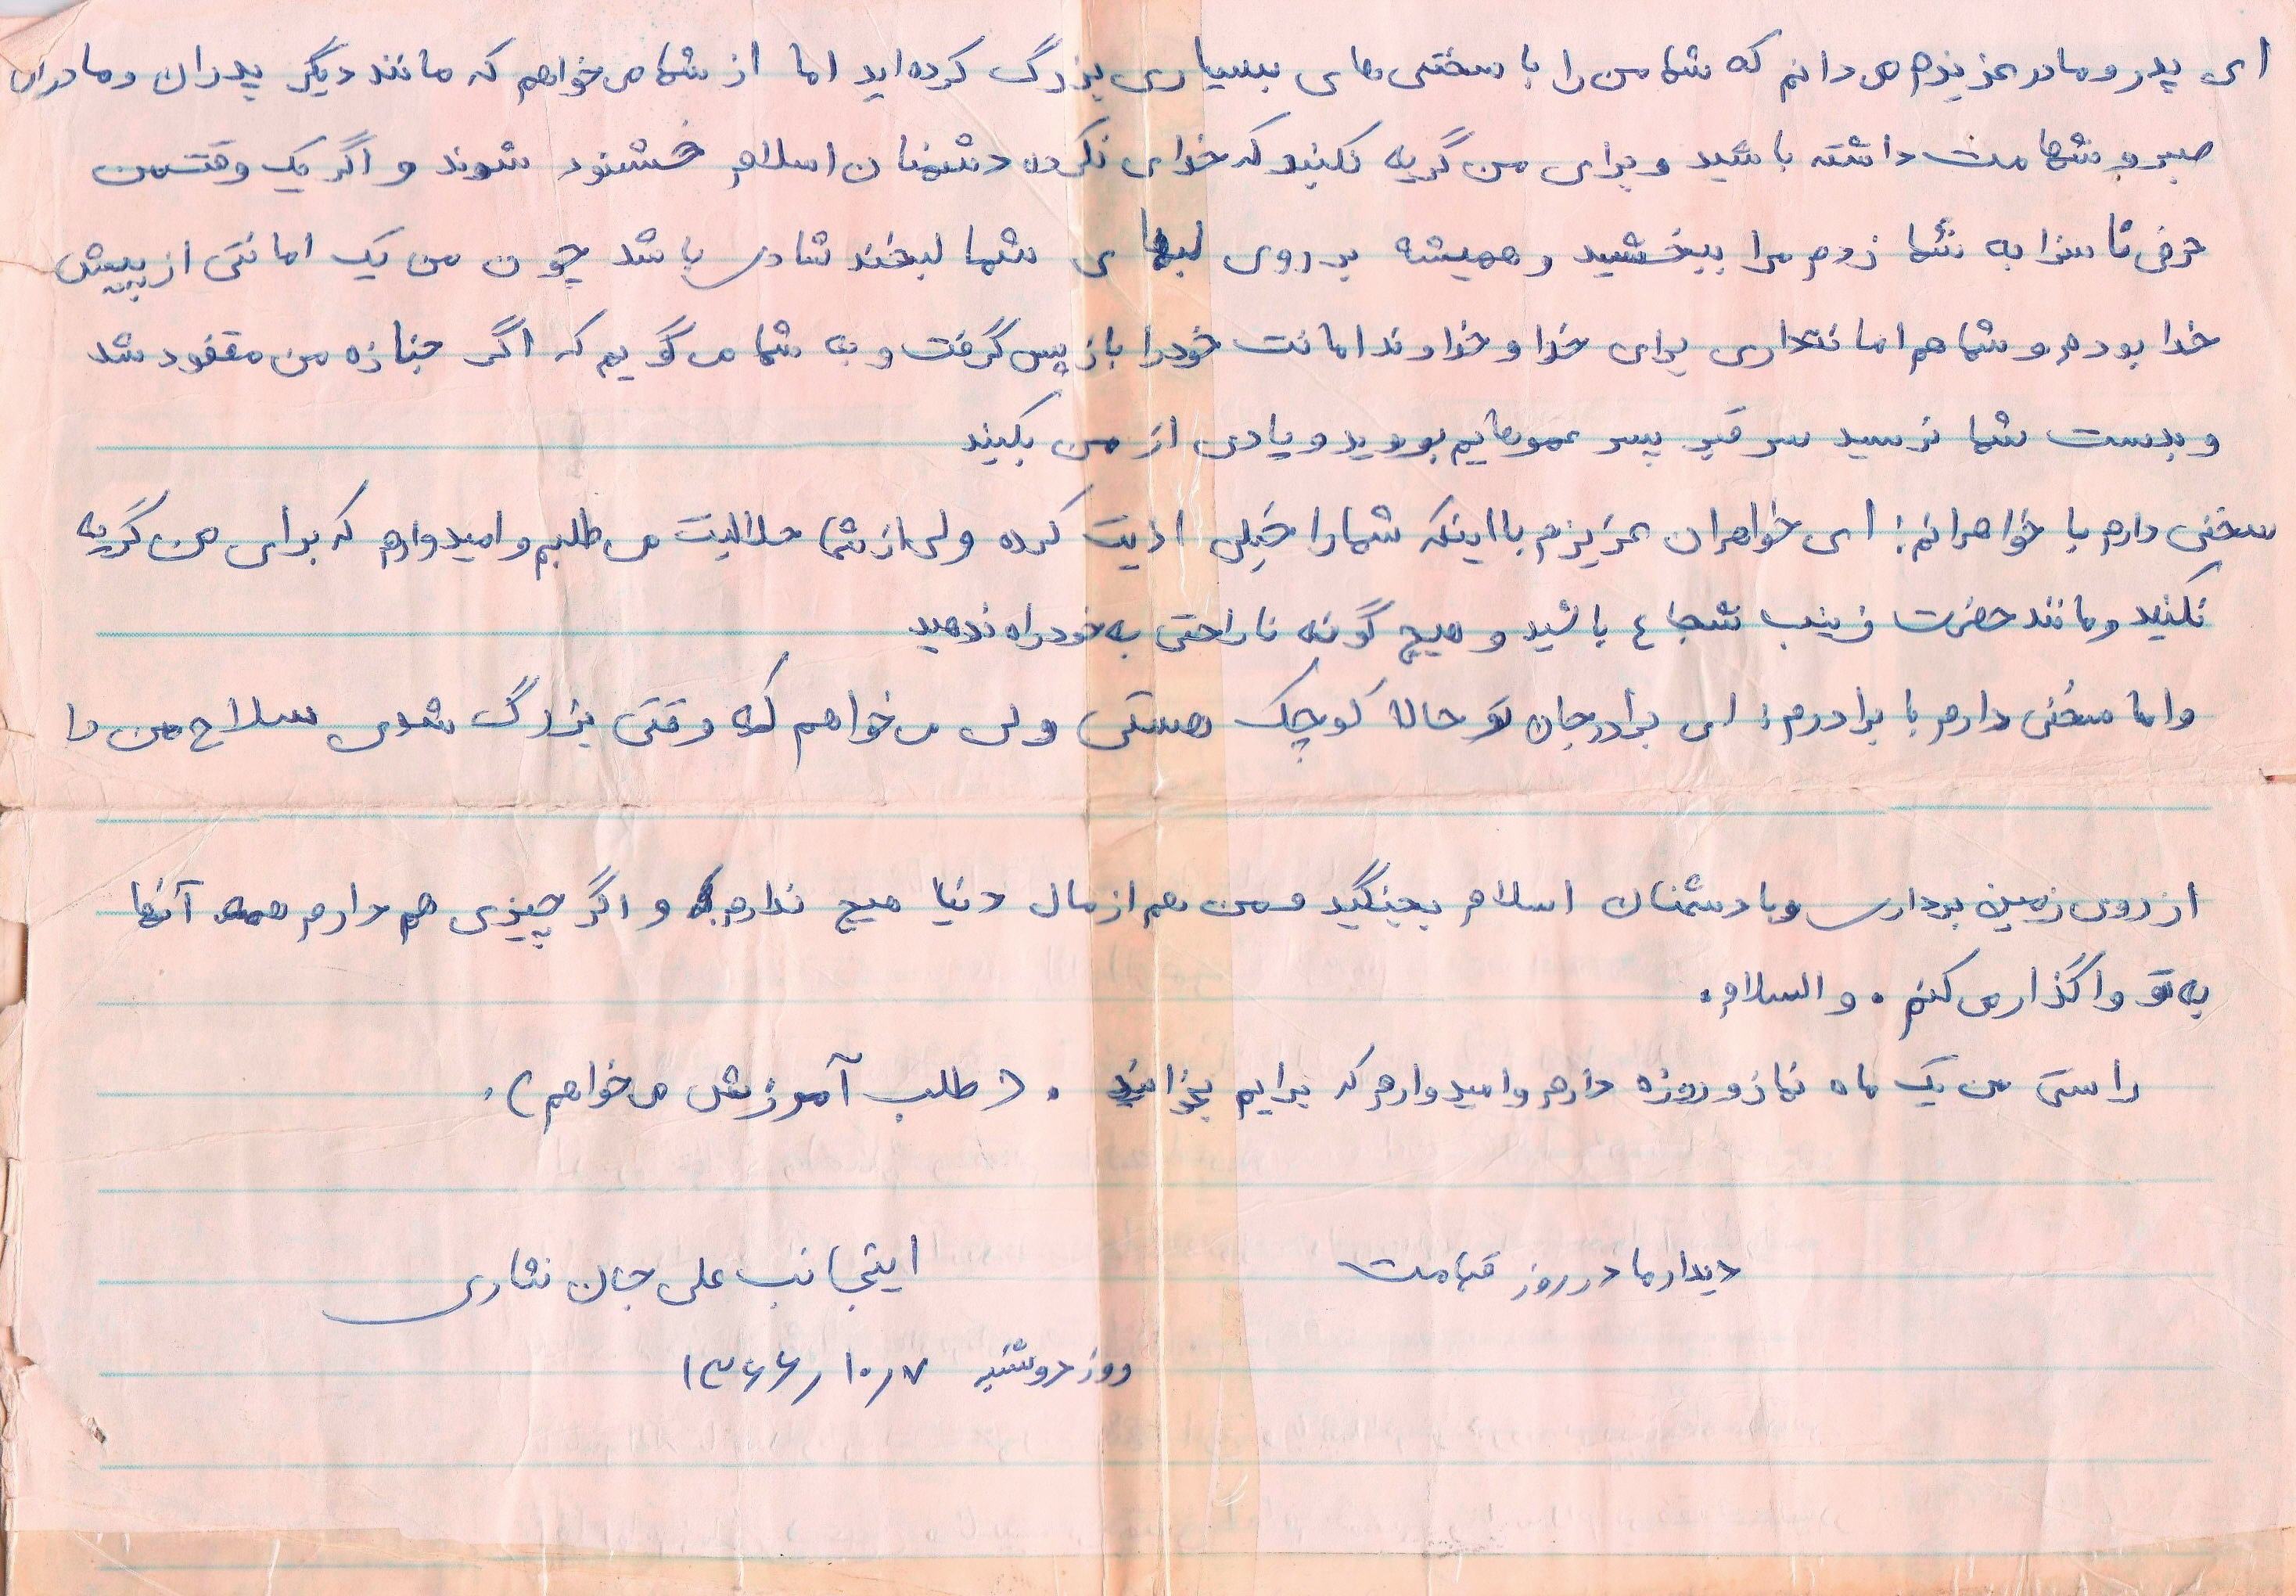 ای پدر و مادر عزیزم می دانم که شما من را با سختی های بسیاری بزرگ کرده اید اما از شما می خواهم که مانند دیگر پدران و مادران
صبر و شهامت داشته باشید و برای من گریه نکنید که خدای نکرده دشمنان اسلام خشنود شوند و اگر یک وقت من
حرف ناسزا به شما زدم مرا ببخشید و همیشه بر روی لبهای شما لبخند شادی باشد چون من یک امانتی از پیش
خدا بودم و شما هم امانتداری برای خدا و خداوند امانت خود را باز پس گرفت و به شما می گویم که اگر جنازه من مفقود شد
و بدست شما نرسید سر قبر پسر عموهایم بروید و یادی از من بکنید
سخنی دارم با خواهرانم: ای خواهران عزیزم با اینکه شما را خیلی اذیت کرده ولی از شما حلالیت می طلبم و امیدوارم که برای من گریه
نکنید و مانند حضرت زینب شجاع باشید و هیچ گونه ناراحتی به خود راه ندهید
و اما سخنی دارم با برادرم: ای برادر جان تو حالا کوچک هستی ولی می خواهم که وقتی بزرگ شدی سلاح من را
از روی زمین برداری و با دشمنان اسلام بجنگید و من هم از مال دنیا هیچ ندارم و اگر چیزی هم دارم همه آنها
به تو واگذار می کنم . والسلام .
راستی من یک ماه نماز و روزه دارم و امیدوارم که برایم بخوانید . (طلب آمرزش می خواهم) .
دیدار ما در روز قیامت
اینجانب علی جان نثاری
روز دوشنبه ۱۳۶۶/۱۰/۷